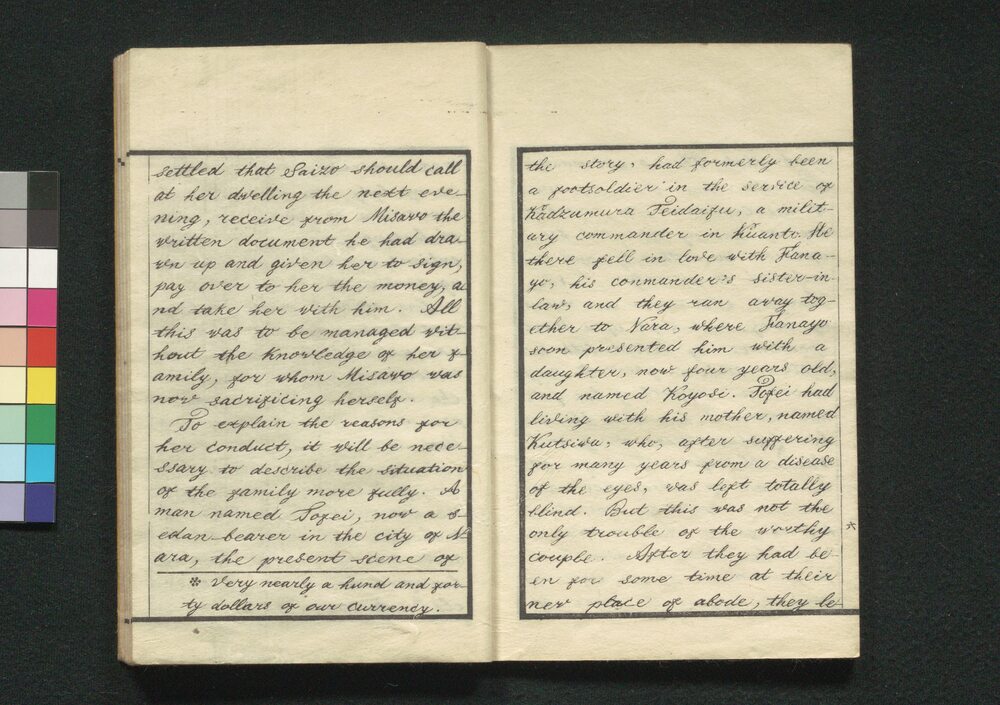 settled that Saizo should call
at her dwelling the next eve-
ning, receive from Misawo the
written document he had dra-
wn up and given her to sign,
pay over to her the money, a
nd take her with him. All
this was to be managed wit-
hout the knowledge of her f-
amily, for whom Misawo was
now sacrificing herself.
To explain the reasons for
her conduct, it will be nece-
ssary to describe the situation
of the family more fully. A
man named Tofei, now a s-
edan-bearer in the city of N-
ara, the present scene of
* Very nearly a hund and for-
ty dollars of our currency.
the story, had formerly been
a footsoldier in the service of
Kadzumura Teidaifu, a milit-
ary commander in Kuanto. He
there fell in love with Fana-
yo, his conmander's sister-in-
law, and they run away tog-
ether to Nara, where Fanayo
soon presented him with a
daughter, now four years old,
and named Koyosi. Tofei had
living with his mother, named
Kutsiwa, who, after suffering
for many years from a disease
of the eyes, was left totally
blind. But this was not the
only trouble of the worthy
couple. After they had be-
en for some time at their
new place of abode, they be-
六